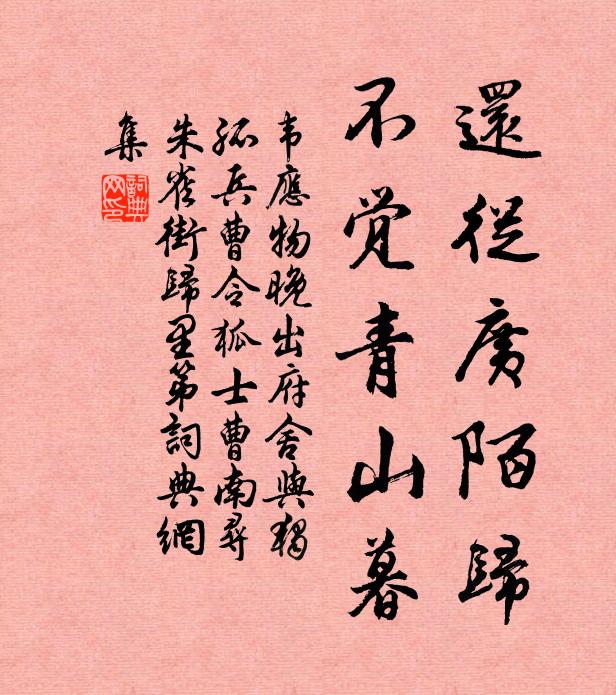 還從廣陌歸
不觉青山暮
韦應物晚出府舍與獨
孤兵曹令狐士曹南尋
朱雀街歸里第詞典網
集
詞典
网印